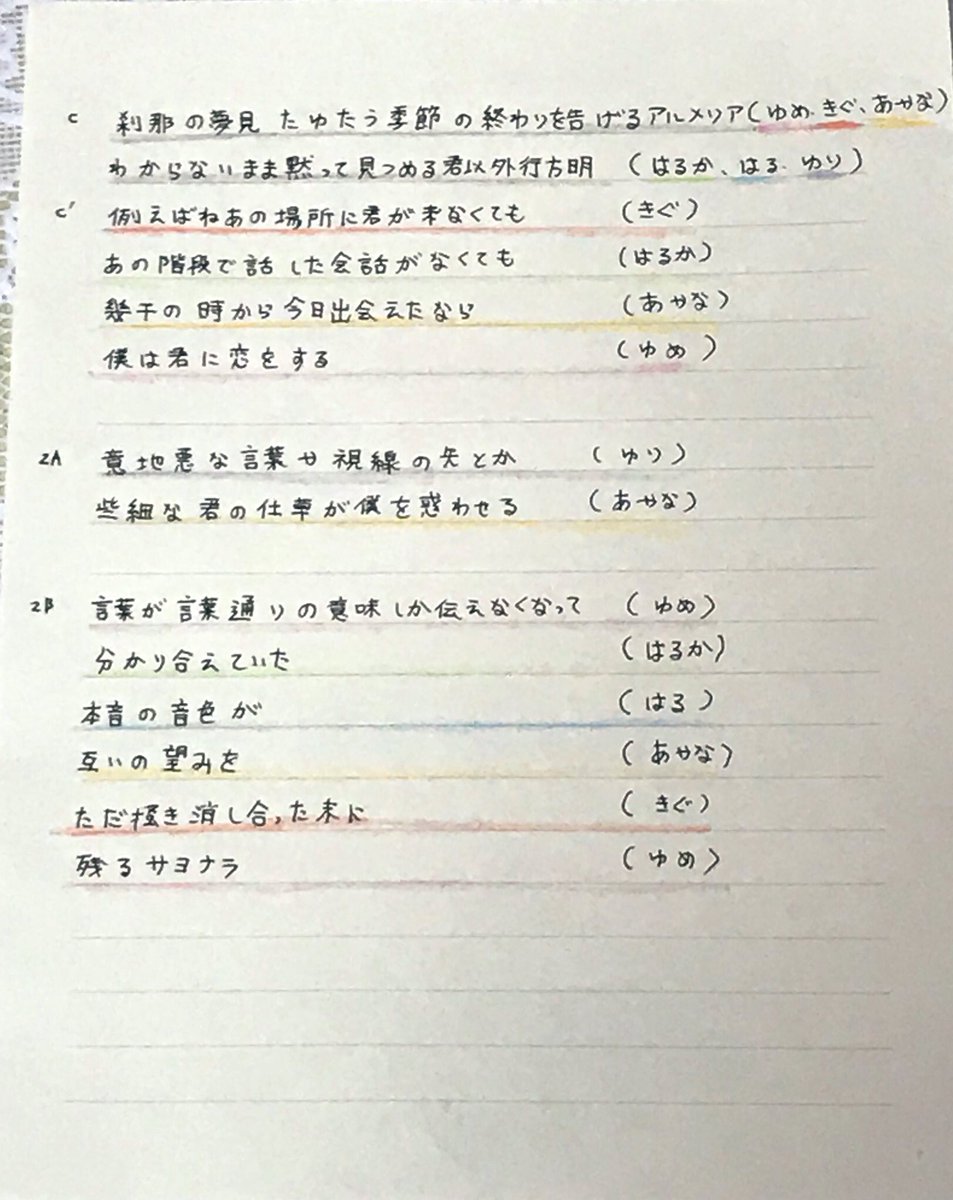 C 刹那の夢見 たゆたう季節の終わりを告げるアルメリア(ゆめ、きぐ、あやな)
わからないまま黙って見つめる君以外行方明 (はるか、はる、ゆり)
C' 例えばねあの場所に君が来なくても (きぐ)
あの階段で話した会話がなくても (はるか)
幾千の時から今日出会えたなら (あやな)
僕は君に恋をする (ゆめ)
2A 意地悪な言葉や視線の矢とか (ゆり)
些細な君の仕草が僕を惑わせる (あやな)
2B 言葉が言葉通りの意味しか伝えなくなって (ゆめ)
分かり合えていた (はるか)
本音の音色が (はる)
互いの望みを (あやな)
ただ掻き消し合った末に (きぐ)
残るサヨナラ (ゆめ)